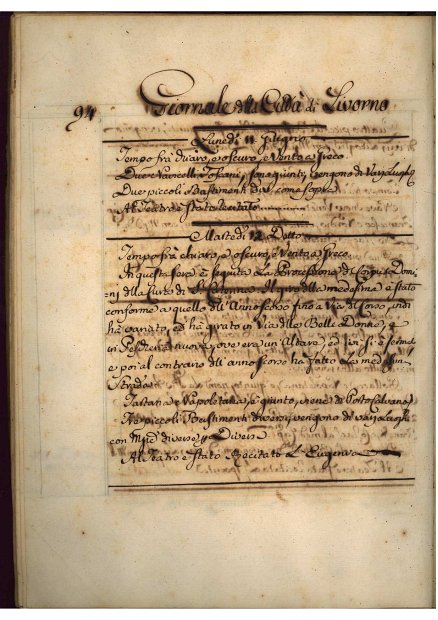 94
Giornale della Città di Livorno
Lunedì 11 Giugno
Tempo frà chiaro, e oscuro, e Vento, e fresco
Due Navicelli Toscani, sono giunti, vengono di Varj Luoghi
Due piccoli Bastimenti div. come sopra
Al Teatro è stato Recitato
Martedì 12 Detto
Tempo frà chiaro, e oscuro, e Vento, e fresco
In questa sera è seguita La Processione di Corpus Domi-
ni della Cura di S. Il giro della medesima è stato
conforme a quello dell'Anno scorso fino a Via di Corso, indi
hà variato, ed hà girato in Via delle Belle Donne, e
in nuova, ove era un Altare, ed ivi si è ferma
e poi al contrario dell'anno scorso hà fatto La medesima
Strada.
Tartana Napoletana, è giunto, viene di Porto
Tre piccoli Bastimenti diversi, vengono di varj Luoghi
con Mied diverse, Diversi
Al Teatro è stato Recitato L'Eugenia